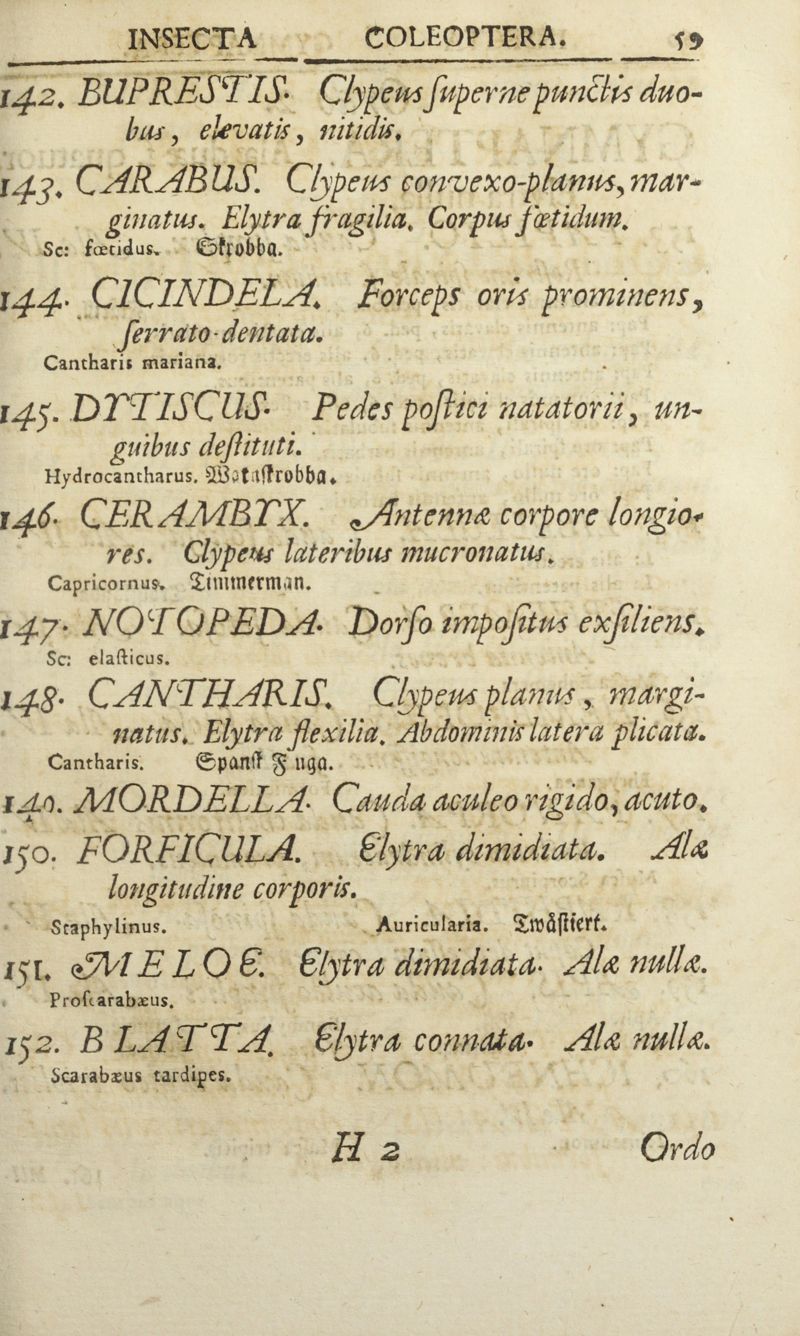 INSECTA COLEOPTERA. 59
142. BUPRESTIS. Clypeus ſuperne punctis duo-
bus, elevatis, nitidis.
143. CARABUS. Clypeus convexo-planus, mar-
ginatus. Elytra fragilia. Corpus fœtidum.
Sc: fœtidus. Skrobba.
144. CICINDELA. Forceps oris prominens,
ſerrato-dentata.
Cantharis mariana.
145. DYTISCUS. Pedes poſtici natatorii, un-
guibus deſtituti.
Hydrocantharus. Wataſkrobba.
146. CERAMBYX. Antennæ corpore longio-
res. Clypeus lateribus mucronatus.
Capricornus. Timmerman.
147. NOTOPEDA. Dorſo impoſitus exſiliens.
Sc: elaſticus.
148. CANTHARIS. Clypeus planus, margi-
natus. Elytra flexilia. Abdominis latera plicata.
Cantharis. Spanſk Fluga.
149. MORDELLA. Cauda aculeo rigido, acuto.
150. FORFICULA. Elytra dimidiata. Alæ
longitudine corporis.
Staphylinus. Auricularia. Twåſtiert.
151. MELOE. Elytra dimidiata. Alæ nullæ.
Proſcarabæus.
152. BLATTA. Elytra connata. Alæ nullæ.
Scarabæus tardipes.
H 2 Ordo